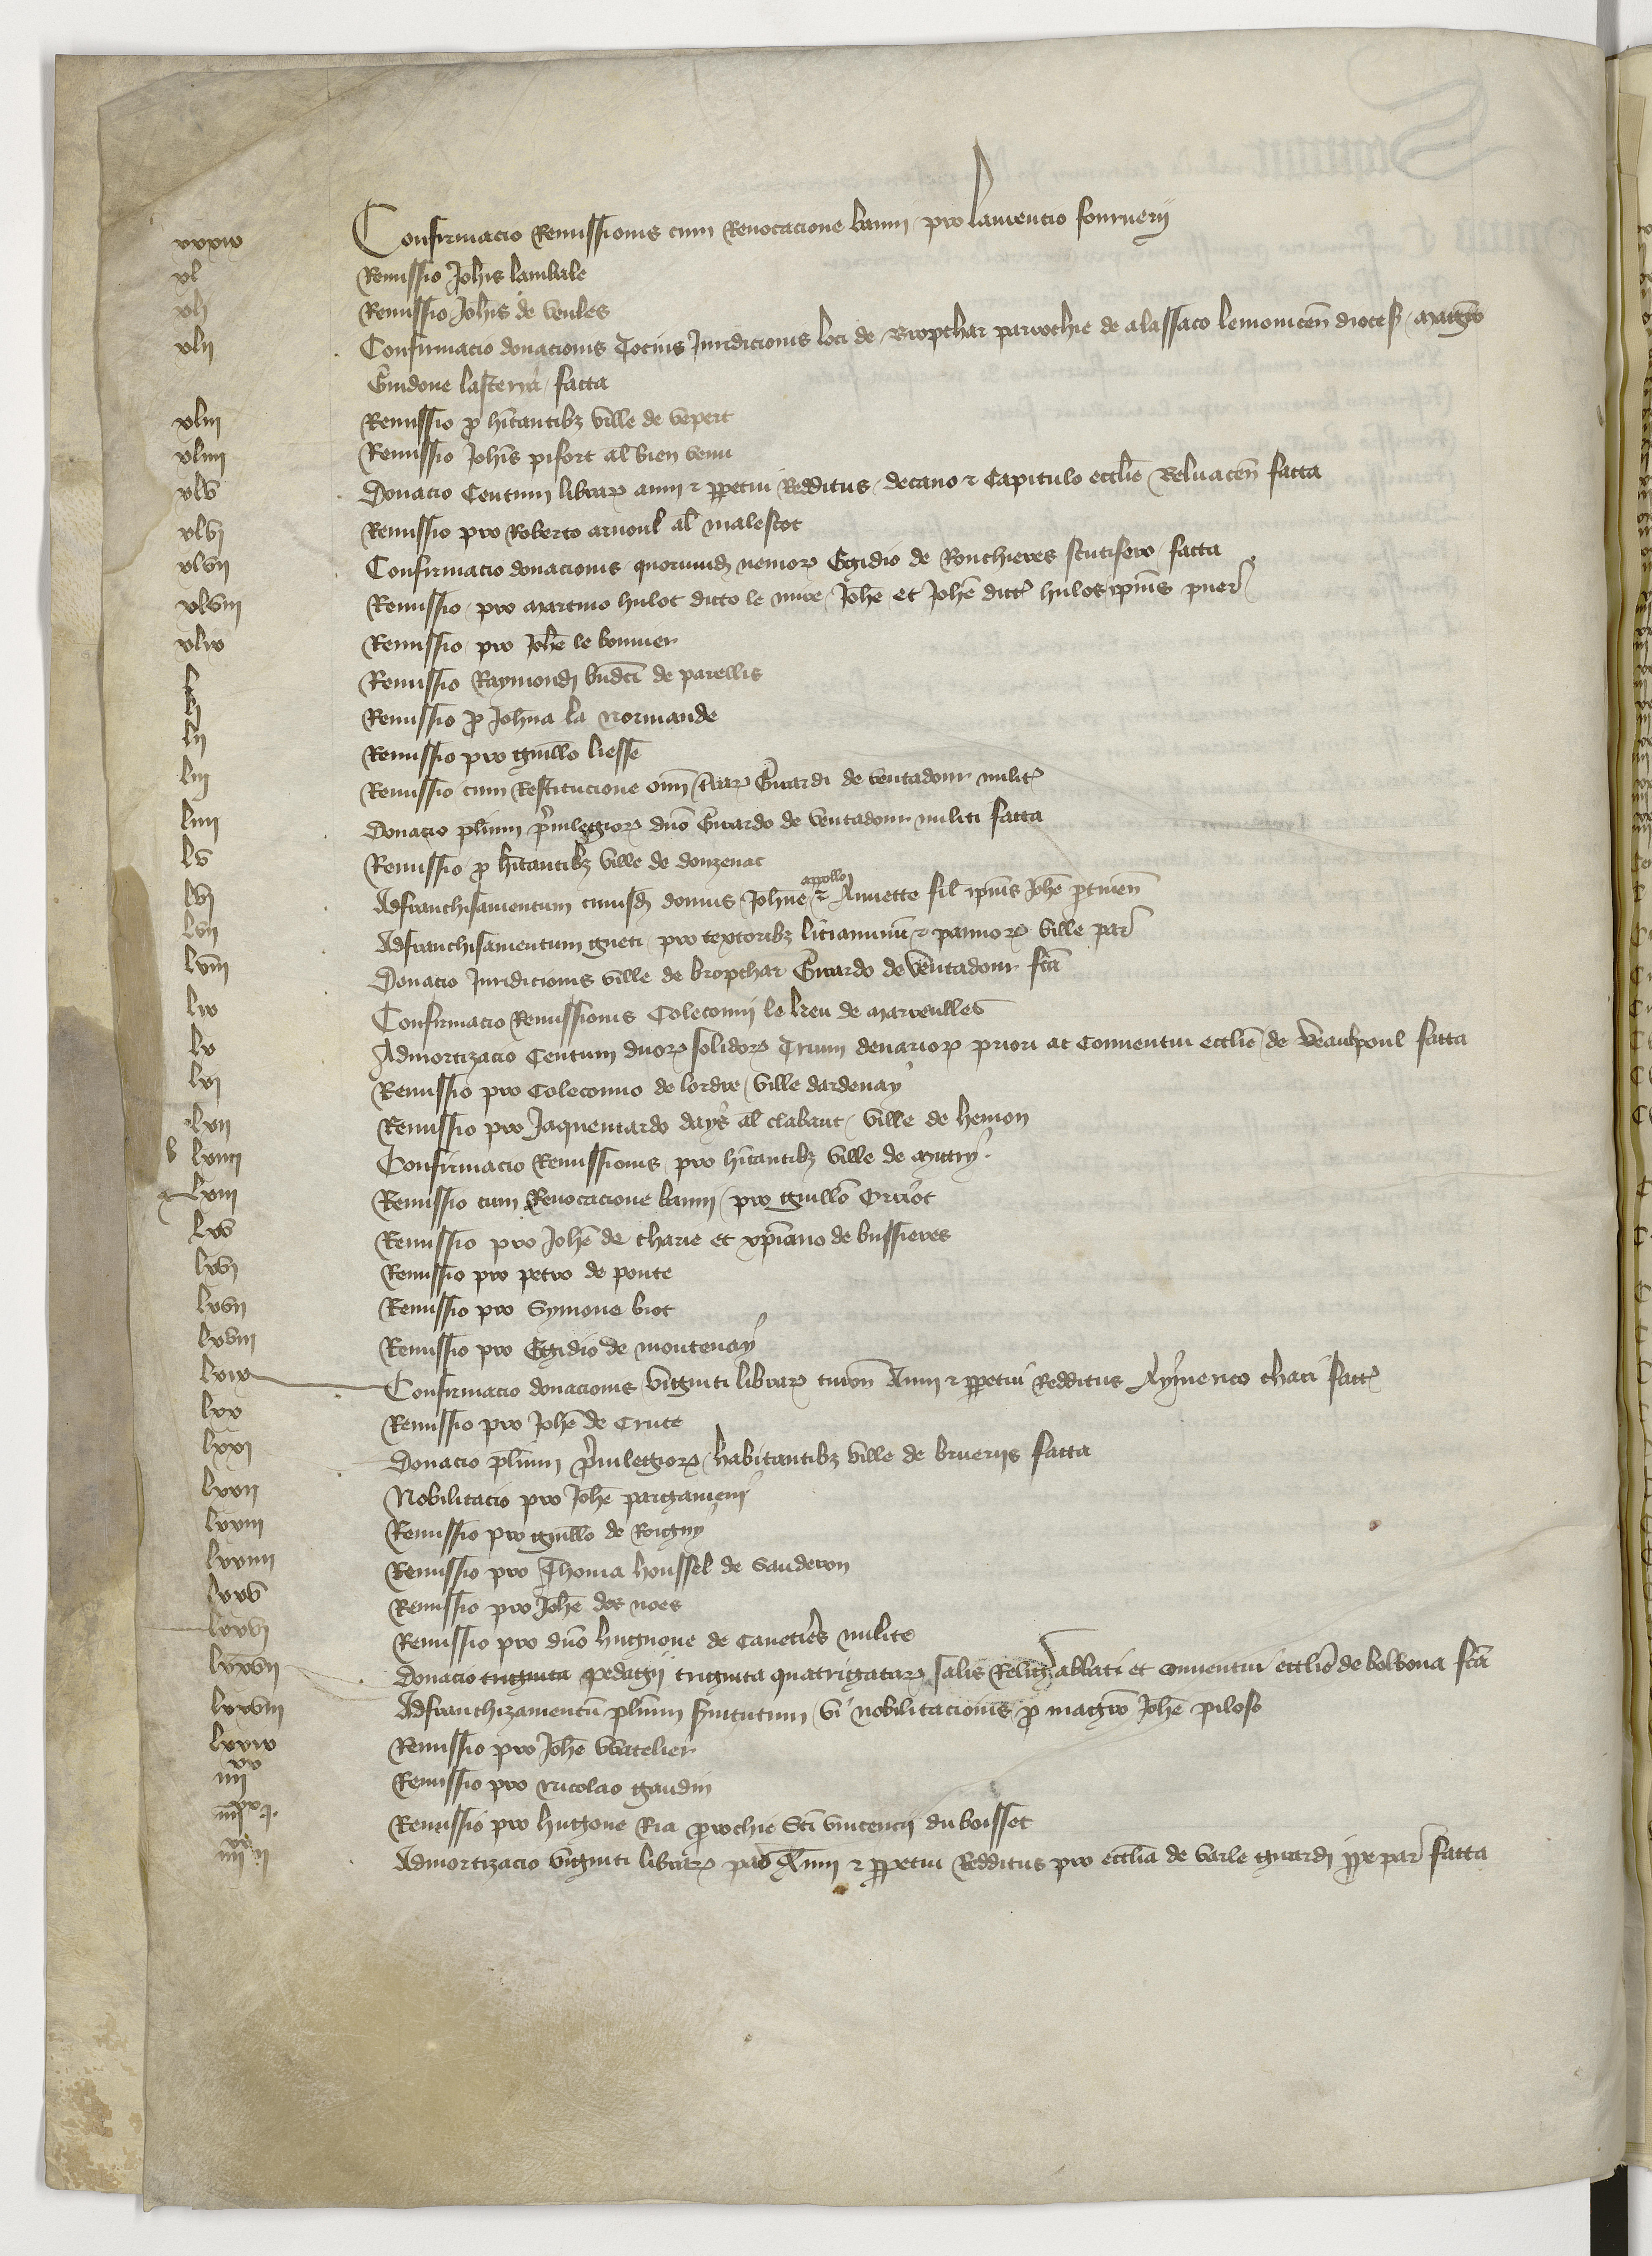 xxxix Confirmacio Remissionis cum Revocacione banni pro Laurencio fournerii
xl Remissio Joh̅is lambale
xli Remissio Joh̅is de veules
xlii Confirmacio donacionis Tocius Juridicionis loci de Bropchar parrochie de alassaco lemonicen̅ dioces̅ magr̅o
Guidone lasterra facta
xliii Remissio p̱ hi̅tantibꝫ ville de vepert
xliiii Remissio Joh̅is pifort al̅ bien venu
xlv Donacio Centum librarꝝ annui ⁊ p̱petui Redditus decano ⁊ Capitulo eccl̅ie Beluacen̅ facta
xlvi Remissio pro Roberto arnoul al̅ malescot
xlvii Confirmacio donacionis quorumdꝫ nemorꝝ Egidio de Ronchieres scutifero facta
xlviii Remissio pro martino hulot dicto le mire Joh̅e et Joh̅e dict̅ hulos ip̅ius puer̅
xlix Remissio pro Joh̅e le bonnier
l Remissio Raymondi bn̅dc̅i de parellis
li Remissio p̱ Joh̅na la normande
lii Remissio pro guill̅o liesse
liii Remissio cum Restitucione om̅i t̅rarꝝ Girardi de ventadour milit̅
liiii Donacio pl̅ium p̅uilegiorꝝ dn̅o Girardo de ventadour militi facta
lv Remissio p̱ hi̅tantibꝫ ville de donzenac
lvi Adfranchisamentum cuiusdꝫ domus Joh̅ne appollo ⁊ Annette fil̅ ip̅ius Joh̅e p̱tinen̅
lvii Adfranchisamentum gueti pro textoribꝫ liciaminu̅ ⁊ pannorꝝ ville par̅
lviii Donacio Juridicionis ville de bropchar Girardo de ventadour fc̅a
lix Confirmacio Remissionis Coleconni le breu de marceulles
lx Admortizacio Centum duorꝝ solidorꝝ Trium denariorꝝ priori ac Conventui eccl̅ie de Beaulpoul facta
lxi Remissio pro Coleconno de lordre ville dardenay
lxii Remissio pro Jaquemardo days al̅ clabaut ville de henon
b lxiiii Confirmacio Remissionis pro hi̅tantibꝫ ville de mitry
a lxiii Remissio cum Revocacione banni pro guill̅o
lxv Remissio pro Joh̅e de charie et xp̅iano de bussieres
lxvi Remissio pro petro de ponte
lxvii Remissio pro Symone biot
lxviii Remissio pro Egidio de montenay
lxix Confirmacio donacionis viginti librarꝝ turon̅ Annui ⁊ p̱petui Redditus Aymerico chaci fact̅
lxx Remissio pro Joh̅e de Cruce
lxxi Donacio pl̅ium p̅uilegiorꝝ habitantibꝫ ville de brueriis facta
lxxii Nobilitacio pro Joh̅e pargameni
lxxiii Remissio pro guill̅o de Roigny
lxxiiii Remissio pro Thoma houssel de Sauderon
lxxv Remissio pro Joh̅e des noes
lxxvi Remissio pro dn̅o hugone de Canetieres milite
lxxvii Donacio triginta pedagii triginta quatrigatarꝝ salis Religꝫ abbati et conventui eccl̅ie de bolbona fc̅a
lxxviii Adfranchizamentu̅ pl̅ium s̅uitutum vi nobilitacionis p̱ magr̅o Joh̅e piloso
lxxix Remissio pro Joh̅e Watelier
iiii xx Remissio pro Nicolao gaudin
iiii xx i Remissio pro hugone Ria p̱rochie Sc̅i vincencii du boisset
iiii xx ii Admortizacio viginti librarꝝ par̅ Annui ⁊ p̱petui Redditus pro eccl̅ia de